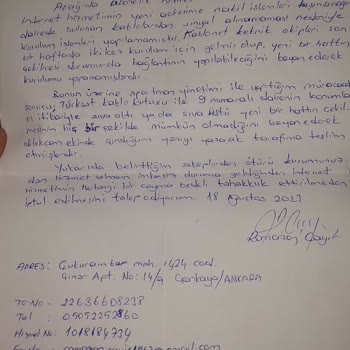 Aşağıda abonelik
internet hizmetimin yeni adresime nakil işlemleri taşınacağım
dairede bulunan kablolardan sinyal alınamaması nedeniyle
kurulum işlemleri yapılamamıştır. Kablonet teknik ekipleri son
bir haftada iki kez kurulum için gelmiş olup, yeni bir hattın
çekilmesi durumunda bağlantının yapılabileceğini beyan ederek
kurulumu yapamamışlardır.
Bunun üzerine apartman yönetimi ile yaptığım müracaat
sonucu, Türksat kablo kutusu ile 9 numaralı dairenin konumları
itibariyle sıva altı ya da sıva üstü yeni bir hattın çekil-
mesinin hiç bir şekilde mümkün olmadığını beyan ederek
dilekçem ekinde sunduğum yazıyı yazarak tarafıma teslim
etmişlerdir.
Yukarıda belirttiğim sebeplerden ötürü kurumunuz-
dan hizmet almam imkansız duruma geldiğinden internet
hizmetimin herhangi bir cayma bedeli tahakkuk ettirilmeden
iptal edilmesini talep ediyorum. 18 Ağustos 2023
Ramazan Çayır
ADRES: Çukurambar mah. 1424 cad.
Çınar Apt. No: 14/9 Çankaya/ANKARA
TC NO : 22636608238
Tel : 05052252860
Hizmet No: 1018184734